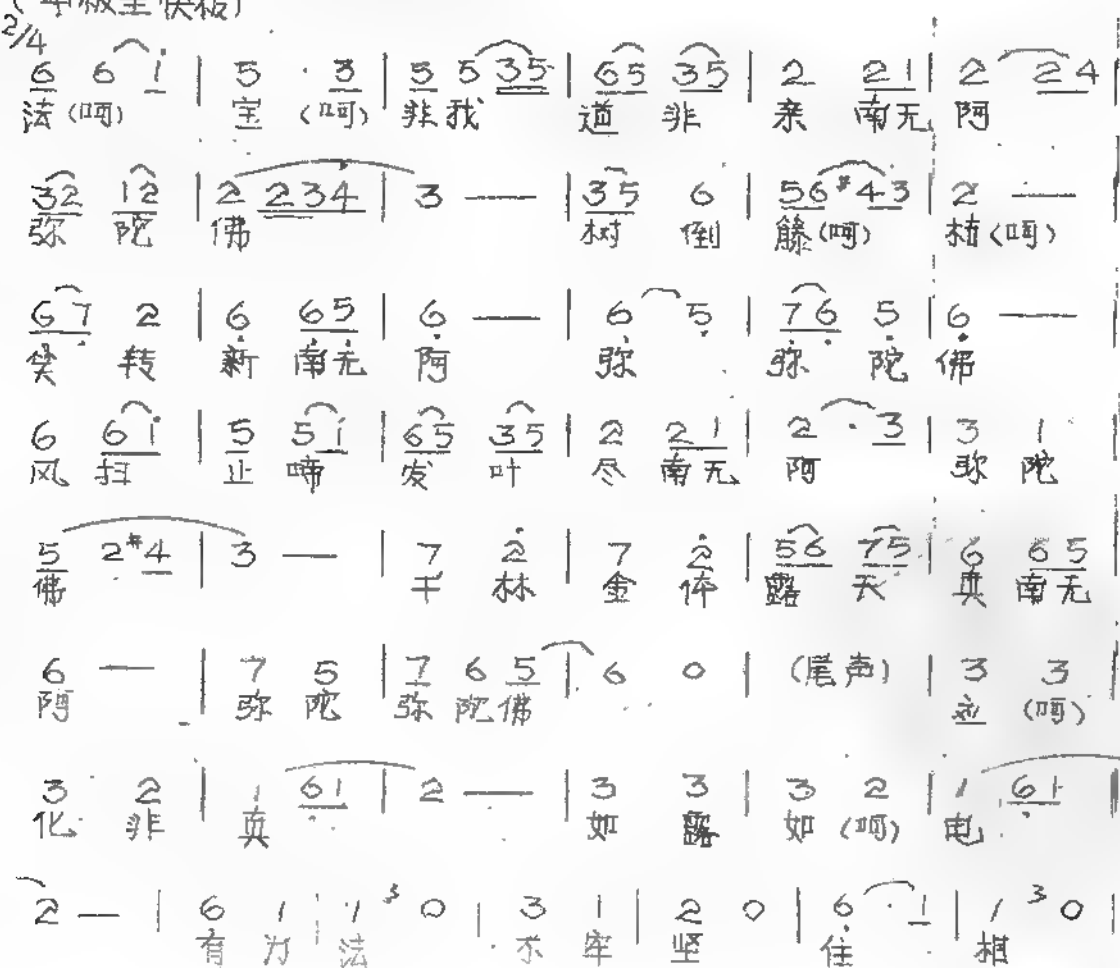 2/4
6 6 i | 5 · 3 | 5 5 35 | 65 35 | 2 21 | 2 24
法(呵) 宝 (呵) 非我 道 非 亲 南无 阿
32 12 | 2 234 | 3 — | 35 6 | 56 #43 | 2 —
弥 陀 佛 树 倒 籐(呵) 枯(呵)
67 2 | 6 65 | 6 — | 6 5 | 76 5 | 6 —
笑 转 新 南无 阿 弥 弥 陀 佛
6 6i | 5 5i | 65 35 | 2 21 | 2 · 3 | 3 1
风 扫 止 啼 发 叶 尽 南无 阿 弥 陀
5 2#4 | 3 — | 7 2 | 7 2 | 56 75 | 6 65
佛 千 林 金 体 露 天 真 南无
6 — | 7 5 | 7 6 5 | 6 0 | (尾声) | 3 3
阿 弥 陀 弥 陀 佛 (呵)
3 2 | 1 61 | 2 — | 3 3 | 3 2 | 1 61
化 非 真 如 露 如 (呵) 电
2 — | 6 1 | 1 3 0 | 3 1 | 2 0 | 6 · 1 | 1 3 0
有 为 法 不 牢 坚 住 相